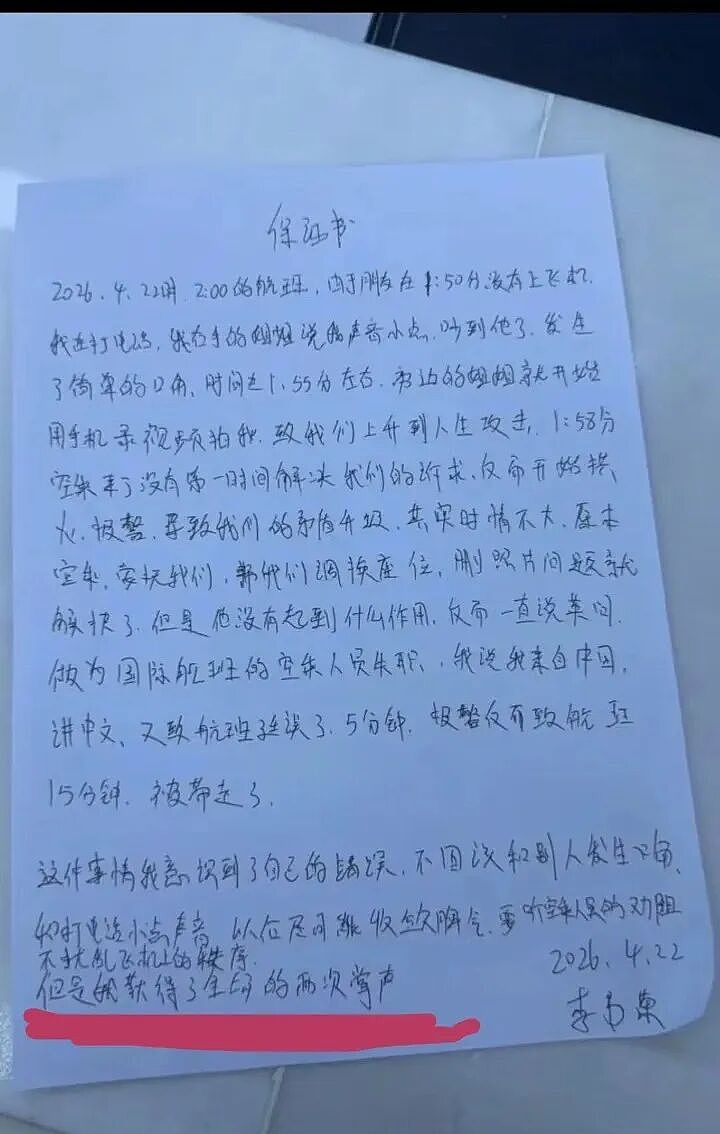 保证书
2026.4.22时.2:00的航班，由于朋友在1:50分没有上飞机.
我在打电话，我右手的姐姐说我声音小点.吵到他了.发生
了简单的口角.时间在1.55分左右.旁边的姐姐就开始
用手机录视频拍我.致我们上升到人生攻击.1:58分
空乘来了没有第一时间解决我们的诉求.反而开始
火.报警.导致我们的矛盾升级.其实时情不大.原本
空乘.安抚我们，帮我们调换座位，删照片问题就
解决了.但是他没有起到什么作用.反而一直说英问.
做为国际航班的空乘人员失职.我说我来自中国.
讲中文.又致航班延误了.5分钟.报警反而致航班
15分钟.被带走了.
这件事情我意识到了自己的错误.不因该和别人发生口角.
打电话小点声音.以后尽可能收敛脾气.要听空乘人员的劝阻
不扰乱飞机上的秩序.
但是我获得了全的两次掌声
2026.4.22
李